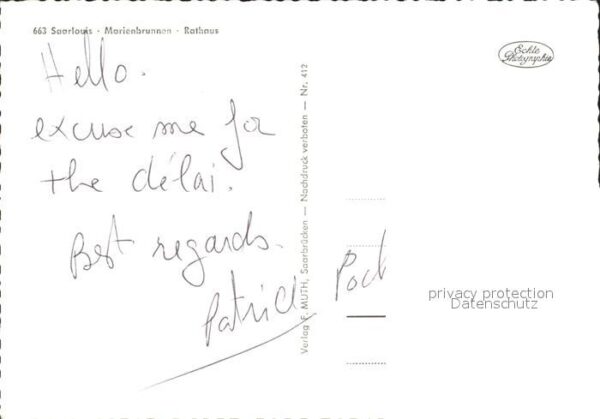 663 Saarlouis · Marienbrunnen · Rathaus
Echte
Photographie
Hello.
excuse me for
the délai.
Best regards.
Patrick Poch
Verlag F. MUTH, Saarbrücken — Nachdruck verboten — Nr. 412
privacy protection
Datenschutz